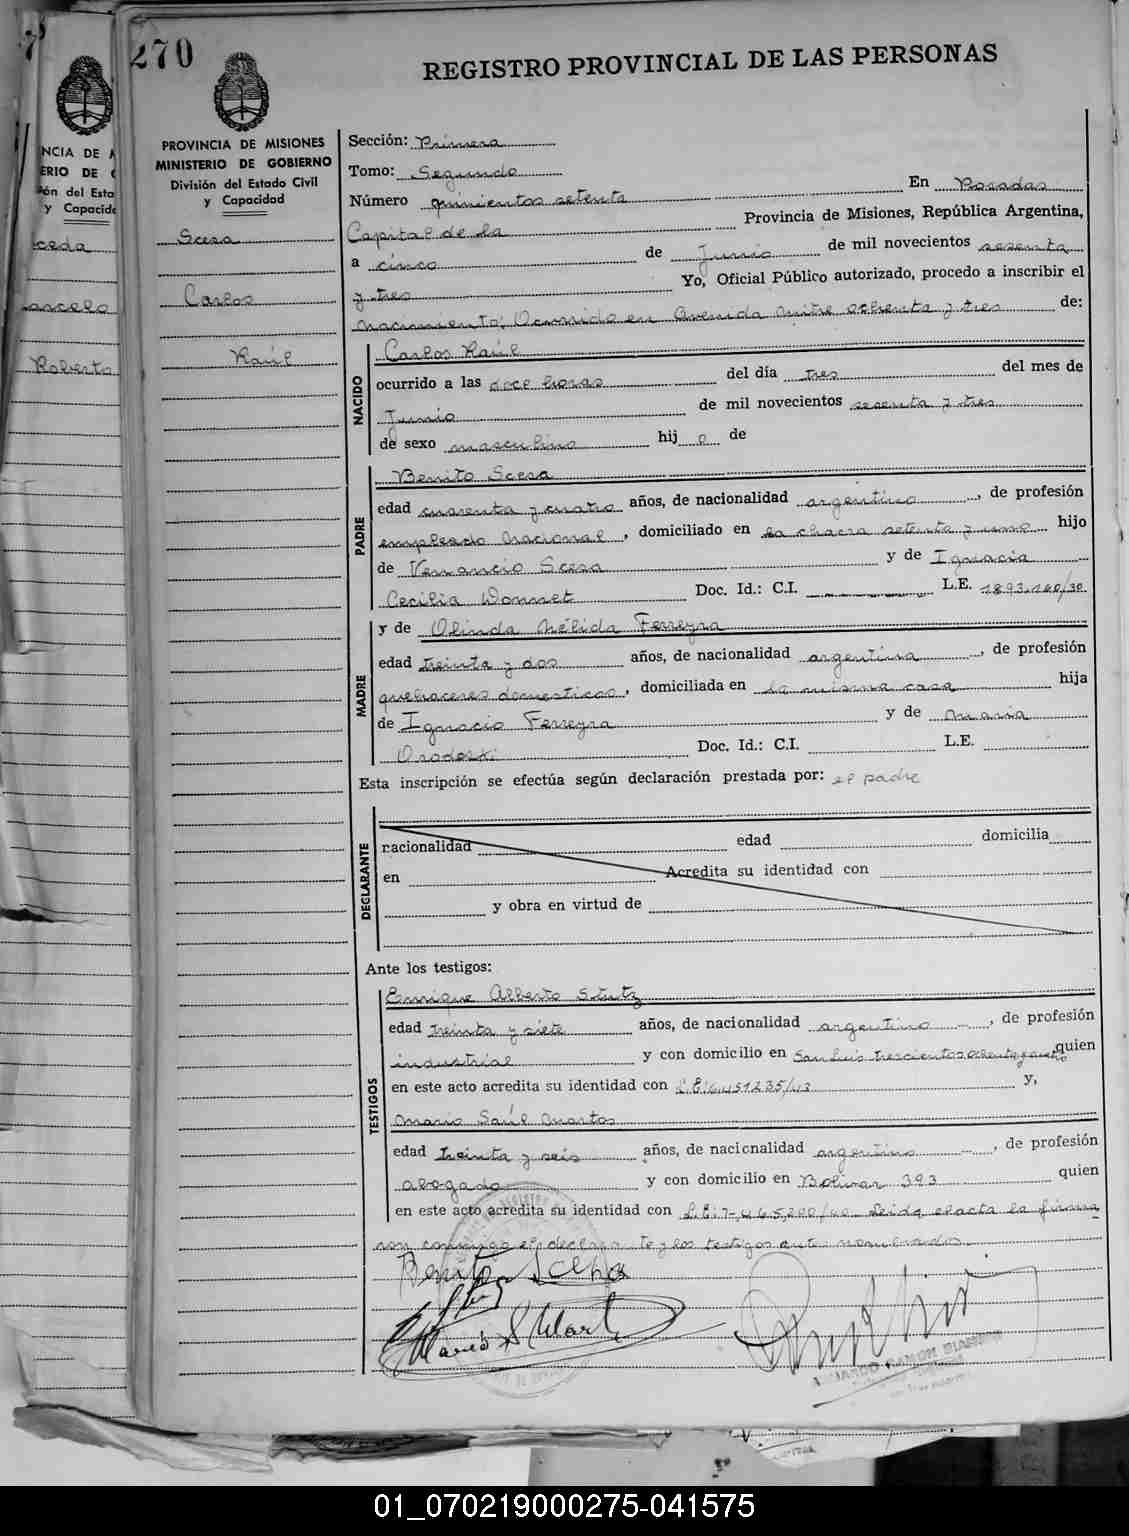 270
REGISTRO PROVINCIAL DE LAS PERSONAS
NCIA DE
ERIO DE
ón del Esta
y Capacida
ceda
arcelo
Roberto
PROVINCIA DE MISIONES
MINISTERIO DE GOBIERNO
División del Estado Civil
y Capacidad
Scesa
Carlos
Raúl
Sección: Primera
Tomo: Segundo
Número quinientos setenta En Posadas
Capital de la Provincia de Misiones, República Argentina,
a cinco de Junio de mil novecientos sesenta
y tres Yo, Oficial Público autorizado, procedo a inscribir el
Nacimiento: Ocurrido en Avenida Mitre ochenta y tres de:
NACIDO
Carlos Raúl
ocurrido a las doce horas del día tres del mes de
Junio de mil novecientos sesenta y tres
de sexo masculino hij o de
PADRE
Benito Scesa
edad cuarenta y cuatro años, de nacionalidad argentino, de profesión
empleado nacional, domiciliado en la chacra setenta y uno hijo
de Venancio Scesa y de Ignacia
Cecilia Wonnet Doc. Id.: C.I. L.E. 1893.160/30
MADRE
y de Olinda Nélida Ferreyra
edad treinta y dos años, de nacionalidad argentina, de profesión
quehaceres domesticos, domiciliada en la misma casa hija
de Ignacio Ferreyra y de Maria
Doc. Id.: C.I. L.E.
Esta inscripción se efectúa según declaración prestada por: el padre
DECLARANTE
nacionalidad edad domicilia
en Acredita su identidad con
y obra en virtud de
Ante los testigos:
TESTIGOS
Enrique Alberto Stutz
edad treinta y siete años, de nacionalidad argentino, de profesión
industrial y con domicilio en San Luis trescientos ochenta y cuatro quien
en este acto acredita su identidad con L.E: 6.451235/43 y,
Mario Saúl Martos
edad treinta y seis años, de nacionalidad argentino, de profesión
abogado y con domicilio en Bolivar 393 quien
en este acto acredita su identidad con L.E: 7.465.200/40 Leida el acta la firma
con conmigo el declarante y los testigos ante nombrados.
Benito Scesa
Mario S Mart
01_070219000275-041575